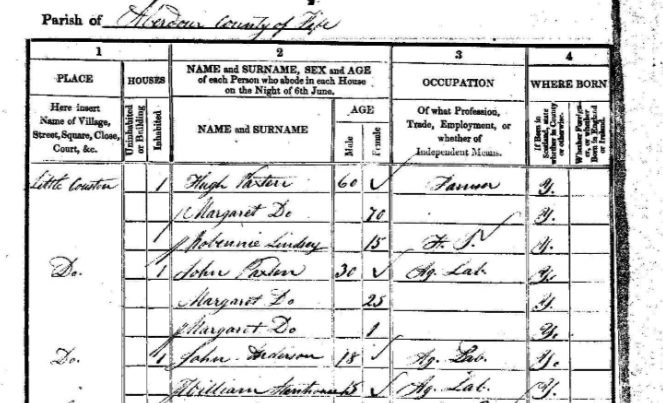 Parish of Aberdour County of Fife
1 2 3 4
PLACE HOUSES NAME and SURNAME, SEX and AGE of each Person who abode in each House on the Night of 6th June. OCCUPATION WHERE BORN
Here insert Name of Village, Street, Square, Close, Court, &c. Uninhabited or Building Inhabited NAME and SURNAME AGE Male Female Of what Profession, Trade, Employment, or whether of Independent Means. If Born in Scotland, state whether in County or otherwise. Whether Foreigner, or whether Born in England or Ireland.
Little Couston 1 Hugh Paxton 60 ✓ Farmer Y.
Margaret Do 70 Y.
Lindsey 15 F. S. Y.
Do. 1 John Paxton 30 ✓ Ag. Lab. Y.
Margaret Do 25 Y.
Margaret Do 1 Y.
Do. 1 John Anderson 18 ✓ Ag. Lab. Y.
William ✓ Ag. Lab. Y.